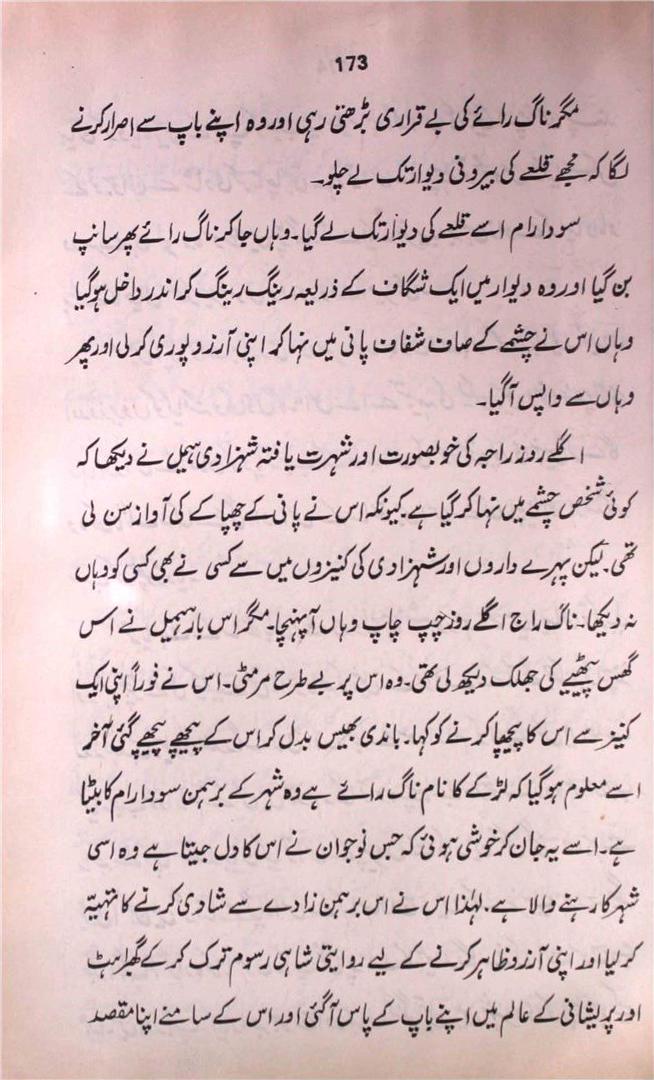 173
مگر ناگ رائے کی بے قراری بڑھتی رہی اور وہ اپنے باپ سے اصرار کرنے
لگا کہ مجھے قلعے کی بیرونی دیوار تک لے چلو۔
سودا رام اسے قلعے کی دیوار تک لے گیا۔ وہاں جا کر ناگ رائے پھر سانپ
بن گیا اور وہ دیوار میں ایک شگاف کے ذریعہ رینگ رینگ کر اندر داخل ہو گیا
وہاں اس نے چشمے کے صاف شفاف پانی میں نہا کر اپنی آرزو پوری کر لی اور پھر
وہاں سے واپس آگیا۔
اگلے روز راجہ کی خوبصورت اور شہرت یافتہ شہزادی ہیمل نے دیکھا کہ
کوئی شخص چشمے میں نہا کر گیا ہے۔ کیونکہ اس نے پانی کے چھپاکے کی آواز سن لی
تھی۔ لیکن پہرے داروں اور شہزادی کی کنیزوں میں سے کسی نے بھی کسی کو وہاں
نہ دیکھا۔ ناگ راج اگلے روز چپ چاپ وہاں آ پہنچا۔ مگر اس بار ہیمل نے اس
گھس پٹھیے کی جھلک دیکھ لی تھی۔ وہ اس پر بے طرح مر مٹی۔ اس نے فوراً اپنی ایک
کنیز سے اس کا پیچھا کرنے کو کہا۔ باندی بھیس بدل کر اس کے پیچھے پیچھے گئی آخر
اسے معلوم ہو گیا کہ لڑکے کا نام ناگ رائے ہے وہ شہر کے برہمن سودا رام کا بیٹا
ہے۔ اسے یہ جان کر خوشی ہوئی کہ جس نوجوان نے اس کا دل جیتا ہے وہ اسی
شہر کا رہنے والا ہے۔ لہٰذا اس نے اس برہمن زادے سے شادی کرنے کا تہیّہ
کر لیا اور اپنی آرزو ظاہر کرنے کے لیے روایتی شاہی رسوم ترک کر کے گھبراہٹ
اور پریشانی کے عالم میں اپنے باپ کے پاس آگئی اور اس کے سامنے اپنا مقصد